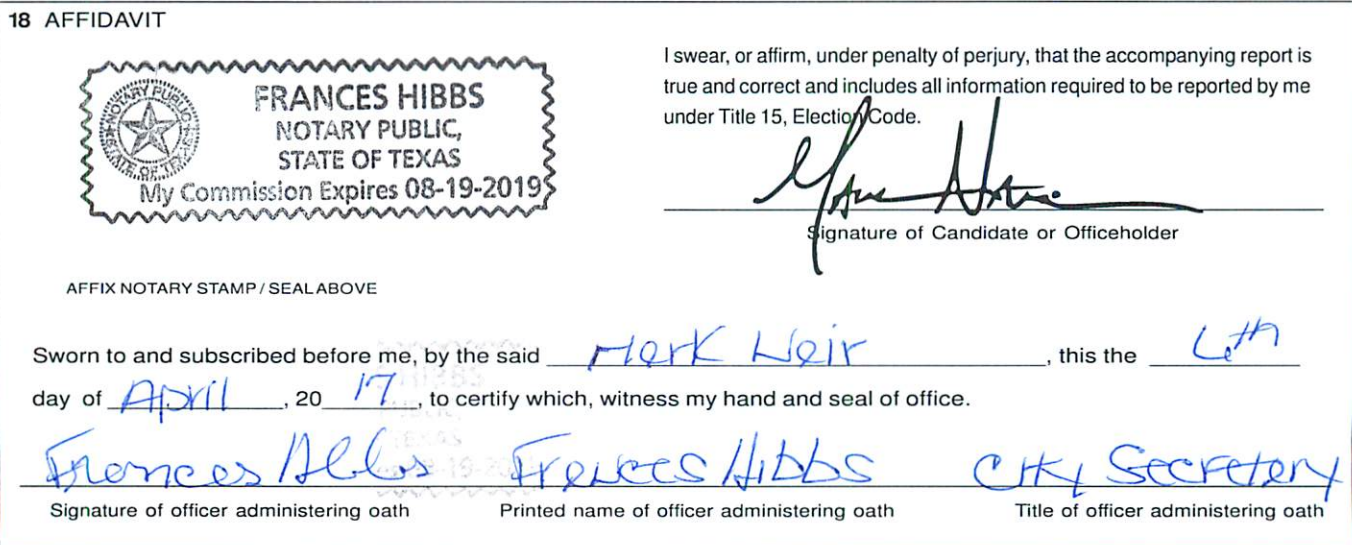 18 AFFIDAVIT
NOTARY PUBLIC
STATE OF TEXAS
FRANCES HIBBS
NOTARY PUBLIC,
STATE OF TEXAS
My Commission Expires 08-19-2019
I swear, or affirm, under penalty of perjury, that the accompanying report is
true and correct and includes all information required to be reported by me
under Title 15, Election Code.
Signature of Candidate or Officeholder
AFFIX NOTARY STAMP / SEAL ABOVE
Sworn to and subscribed before me, by the said Mark Weir, this the
day of April, 20 17, to certify which, witness my hand and seal of office.
Frances Hibbs Frances Hibbs City Secretary
Signature of officer administering oath Printed name of officer administering oath Title of officer administering oath